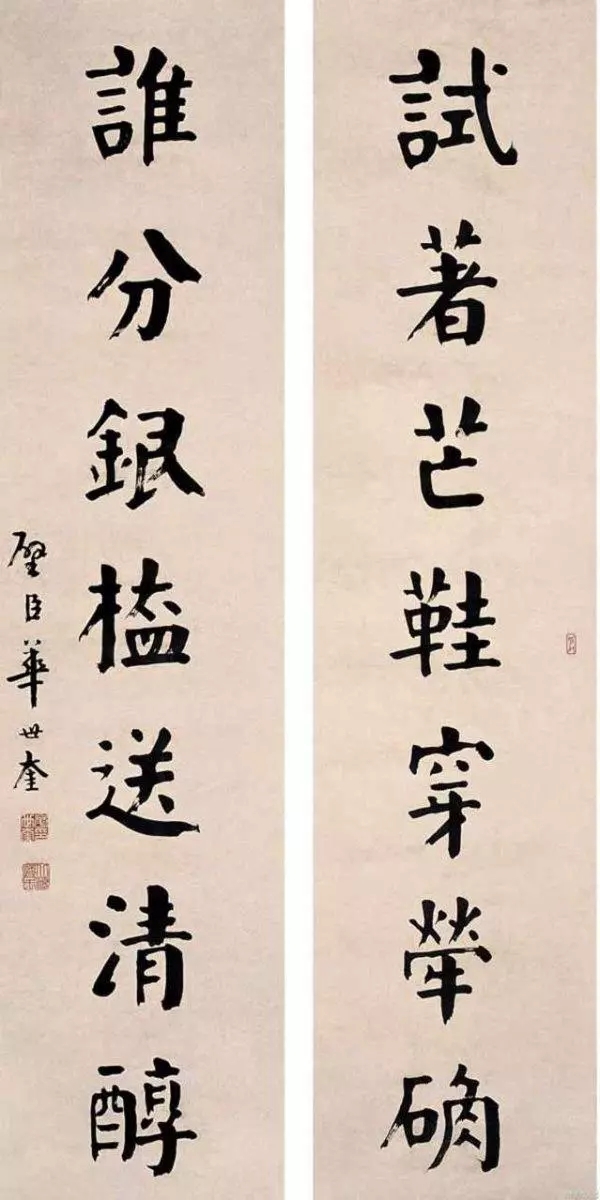 試著芒鞋穿犖确
誰分銀榼送清醇
璧臣華世奎